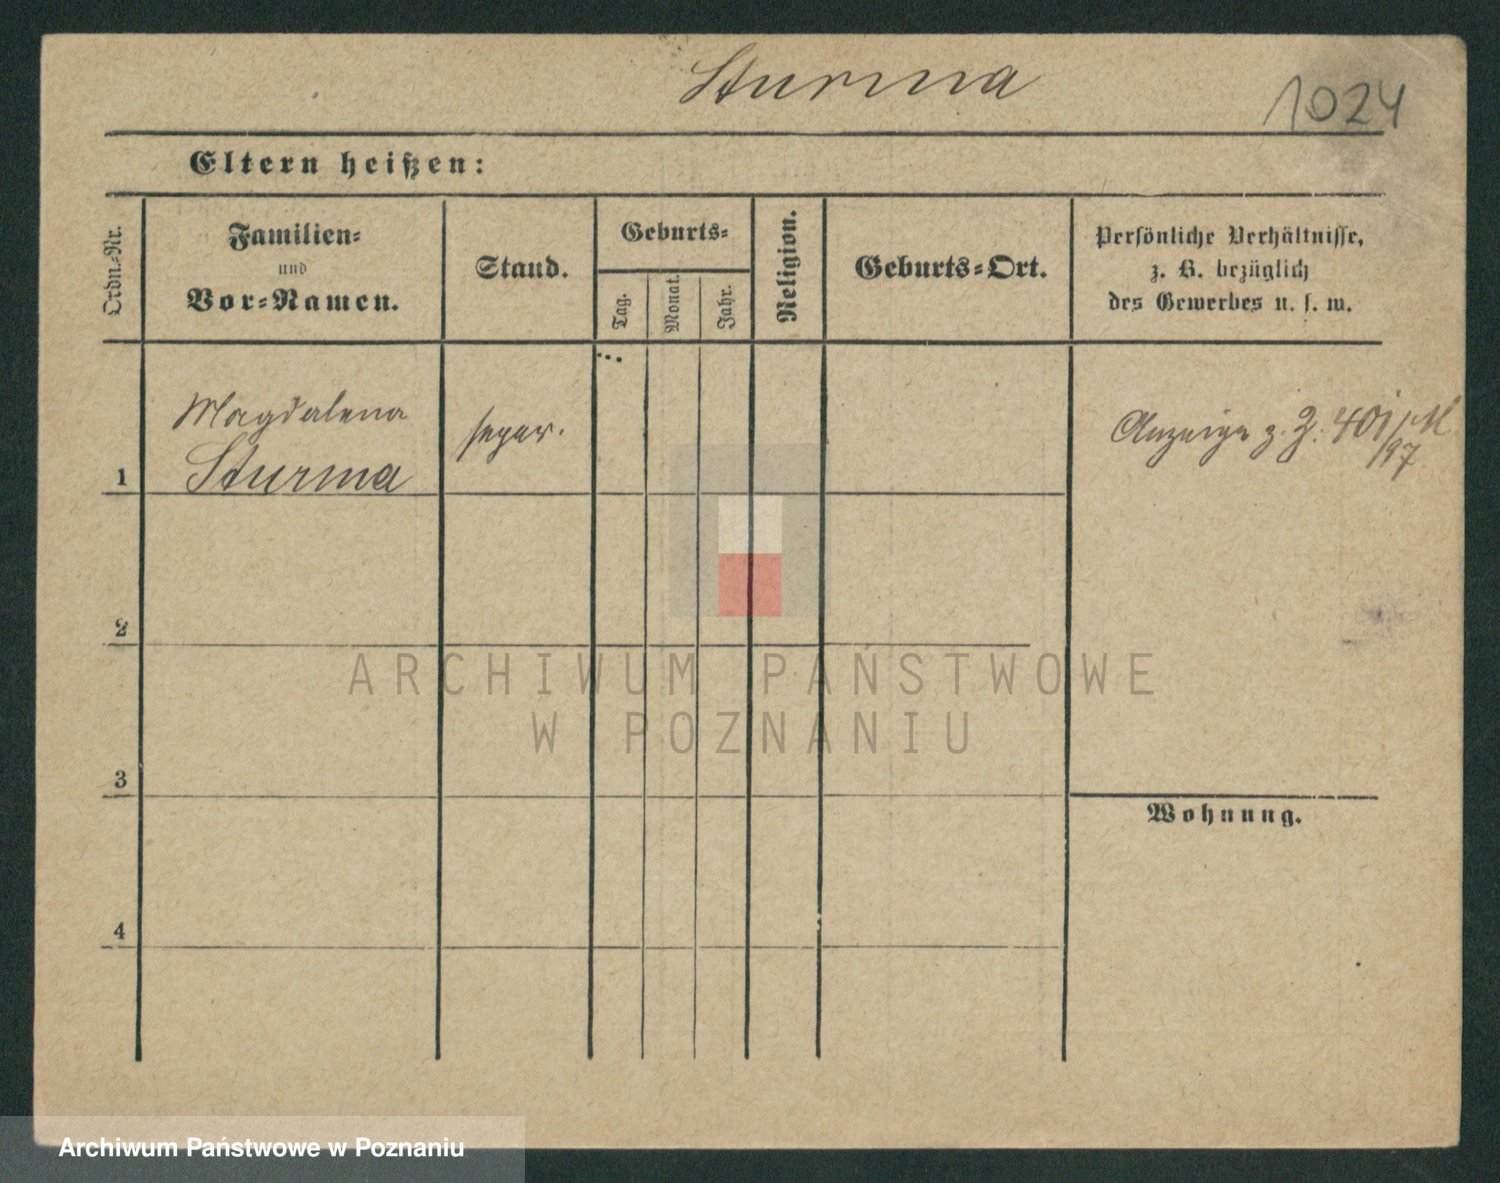 Sturma
1024
Eltern heißen:
Ordn.-Nr.
Familien-
und
Vor-Namen.
Stand.
Geburts-
Tag.
Monat.
Jahr.
Religion.
Geburts-Ort.
Persönliche Verhältnisse,
z. B. bezüglich
des Gewerbes u. s. w.
1
Magdalena
Sturma
separ.
Anzeige z. J. 401/M
/97
2
3
4
Wohnung.
ARCHIWUM PAŃSTWOWE
W POZNANIU
Archiwum Państwowe w Poznaniu